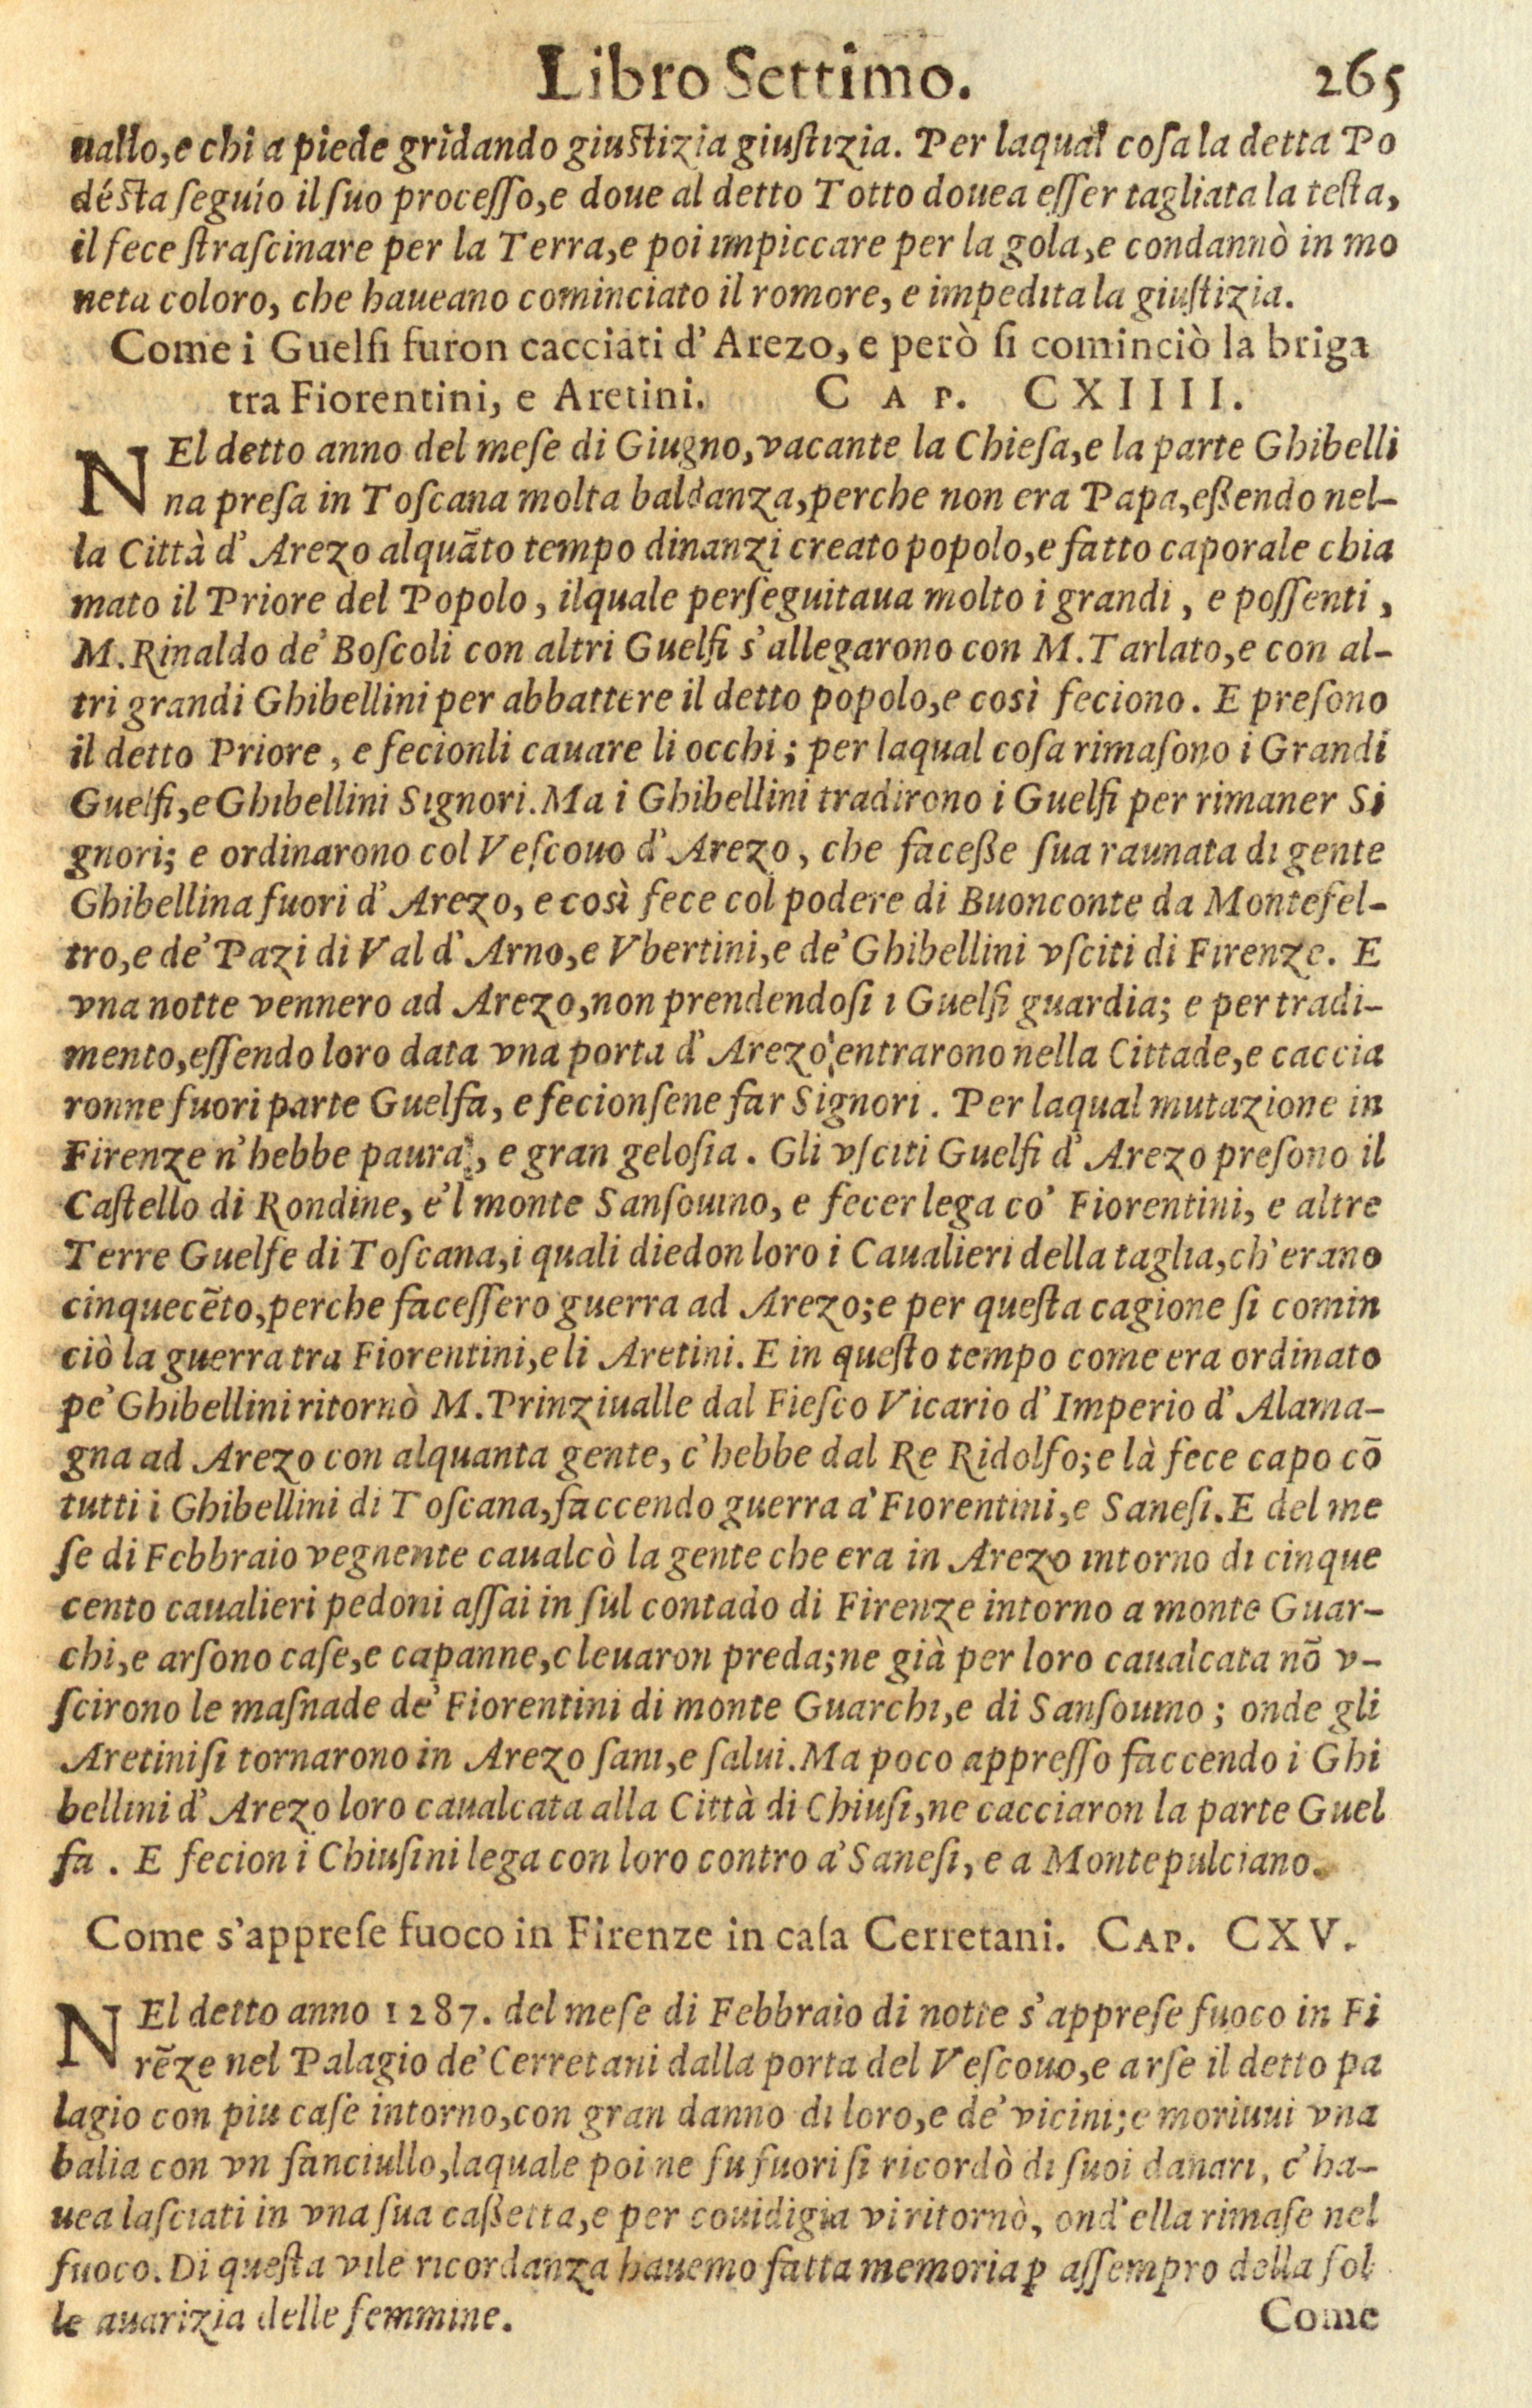 Libro Settimo. 265
uallo, e chi a piede gridando giuſtizia giuſtizia. Per laqual coſa la detta Po
déſta ſeguío il ſuo proceſſo, e doue al detto Totto douea eſſer tagliata la teſta,
il fece ſtraſcinare per la Terra, e poi impiccare per la gola, e condannò in mo
neta coloro, che haueano cominciato il romore, e impedita la giuſtizia.
Come i Guelfi furon cacciati d'Arezo, e però ſi cominciò la briga
tra Fiorentini, e Aretini. CAP. CXIIII.
NEl detto anno del meſe di Giugno, vacante la Chieſa, e la parte Ghibelli
na preſa in Toſcana molta baldanza, perche non era Papa, eßendo nel-
la Città d'Arezo alquãto tempo dinanzi creato popolo, e fatto caporale chia
mato il Priore del Popolo, ilquale perſeguitaua molto i grandi, e poſſenti,
M. Rinaldo de' Boſcoli con altri Guelfi s'allegarono con M. Tarlato, e con al-
tri grandi Ghibellini per abbattere il detto popolo, e così feciono. E preſono
il detto Priore, e fecionli cauare li occhi; per laqual coſa rimaſono i Grandi
Guelfi, e Ghibellini Signori. Ma i Ghibellini tradirono i Guelfi per rimaner Si
gnori; e ordinarono col Veſcouo d'Arezo, che faceße ſua raunata di gente
Ghibellina fuori d'Arezo, e così fece col podere di Buonconte da Montefel-
tro, e de' Pazi di Val d'Arno, e Vbertini, e de' Ghibellini vſciti di Firenze. E
vna notte vennero ad Arezo, non prendendoſi i Guelfi guardia; e per tradi-
mento, eſſendo loro data vna porta d'Arezo, entrarono nella Cittade, e caccia
ronne fuori parte Guelfa, e fecionſene far Signori. Per laqual mutazione in
Firenze n'hebbe paura, e gran geloſia. Gli vſciti Guelfi d'Arezo preſono il
Caſtello di Rondine, e'l monte Sanſouino, e fecer lega co' Fiorentini, e altre
Terre Guelfe di Toſcana, i quali diedon loro i Caualieri della taglia, ch'erano
cinquecẽto, perche faceſſero guerra ad Arezo; e per queſta cagione ſi comin
ciò la guerra tra Fiorentini, e li Aretini. E in queſto tempo come era ordinato
pe' Ghibellini ritornò M. Prinziualle dal Fieſco Vicario d'Imperio d'Alama-
gna ad Arezo con alquanta gente, c'hebbe dal Re Ridolfo; e là fece capo cõ
tutti i Ghibellini di Toſcana, faccendo guerra a' Fiorentini, e Saneſi. E del me
ſe di Febbraio vegnente caualcò la gente che era in Arezo intorno di cinque
cento caualieri pedoni aſſai in ſul contado di Firenze intorno a monte Guar-
chi, e arſono caſe, e capanne, e leuaron preda; ne già per loro caualcata nõ v-
ſcirono le maſnade de' Fiorentini di monte Guarchi, e di Sanſouino; onde gli
Aretini ſi tornarono in Arezo ſani, e ſalui. Ma poco appreſſo faccendo i Ghi
bellini d'Arezo loro caualcata alla Città di Chiuſi, ne cacciaron la parte Guel
fa. E fecion i Chiuſini lega con loro contro a' Saneſi, e a Montepulciano.
Come s'appreſe fuoco in Firenze in caſa Cerretani. CAP. CXV.
NEl detto anno 1287. del meſe di Febbraio di notte s'appreſe fuoco in Fi
rẽze nel Palagio de' Cerretani dalla porta del Veſcouo, e arſe il detto pa
lagio con piu caſe intorno, con gran danno di loro, e de' vicini; e moriuui vna
balia con vn fanciullo, laquale poi ne fu fuori ſi ricordò di ſuoi danari, c'ha-
uea laſciati in vna ſua caßetta, e per couidigia vi ritornò, ond'ella rimaſe nel
fuoco. Di queſta vile ricordanza hauemo fatta memoria ꝑ aſſempro della fol
le auarizia delle femmine. Come